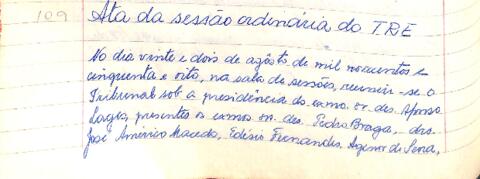 109 Ata da sessão ordinária do TRE
No dia vinte e dois de agôsto de mil novecentos e
cinquenta e oito, na sala de sessões, reuniu-se o
Tribunal sob a presidência do exmo. sr. des. Afonso
Lages, presentes os exmos srs. des. Pedro Braga, drs.
José Américo Macedo, Edésio Fernandes, Agenor de Sena,